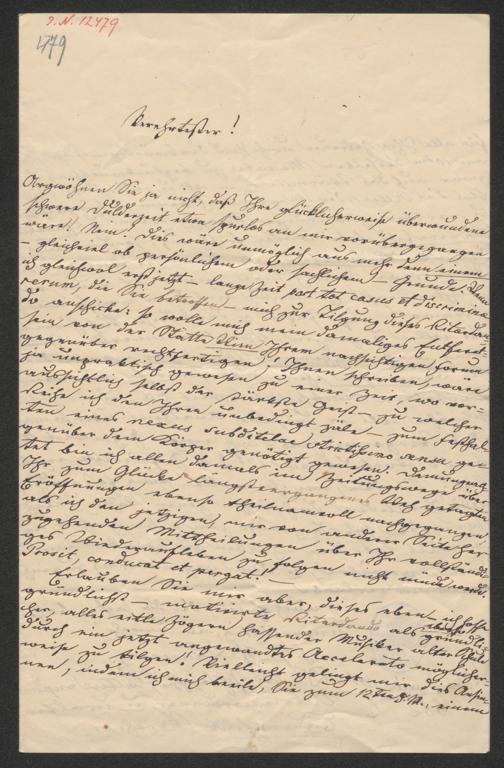 I. N. 12479
479
Verehrtester!
Argwöhnen Sie ja nicht, daß Ihre glücklicherweise überwundene
schwere Dulderzeit etwa spurlos an mir vorübergegangen
wäre! Nein! Dies wäre unmöglich aus mehr denn einem
– gleichviel ob persönlichem oder sachlichem – Grunde. Wenn
ich gleichwol erst jetzt – lange Zeit post tot casus et discrimina
rerum, die Sie betroffen – mich zur Tilgung dieses Ritardan-
do anschicke: so wolle mich mein damaliges Entfernt-
sein von der Stätte Wien Ihrem nachsichtigen Forum
gegenüber rechtfertigen. Ihnen schreiben, wäre
ja unpraktisch gewesen zu einer Zeit, wo vor-
aussichtlich selbst der stärkste Geist – zu welcher
Reihe ich den Ihren unbedingt zäle – zum Festhal-
ten eines nexus subditelae, strictissimo sensu ge-
genüber dem Körper genötigt gewesen. Demungeach-
tet bin ich allen damals im Zeitungswege über
Ihr zum Glücke längstvergangenes Weh gebrachten
Eröffnungen ebenso theilnamvoll nachgegangen,
als ich den jetzigen, mir von anderer Seite her
zugehenden Mittheilungen über Ihr vollständi-
ges Wiederaufleben zu folgen nicht müde werde.
Prosit, conducat et perget! –
Erlauben Sie mir aber, dieses eben, ich hoffe
gründlichst – motivirte Ritardando als gründli-
cher, alles eitle Zögern hassender Musiker alter Schule
durch ein jetzt angewandtes Accelerato möglicher-
weise zu tilgen! Vielleicht gelingt mir dies Ansin-
nen, indem ich mich beeile, Sie zum 12ten d. M., einem